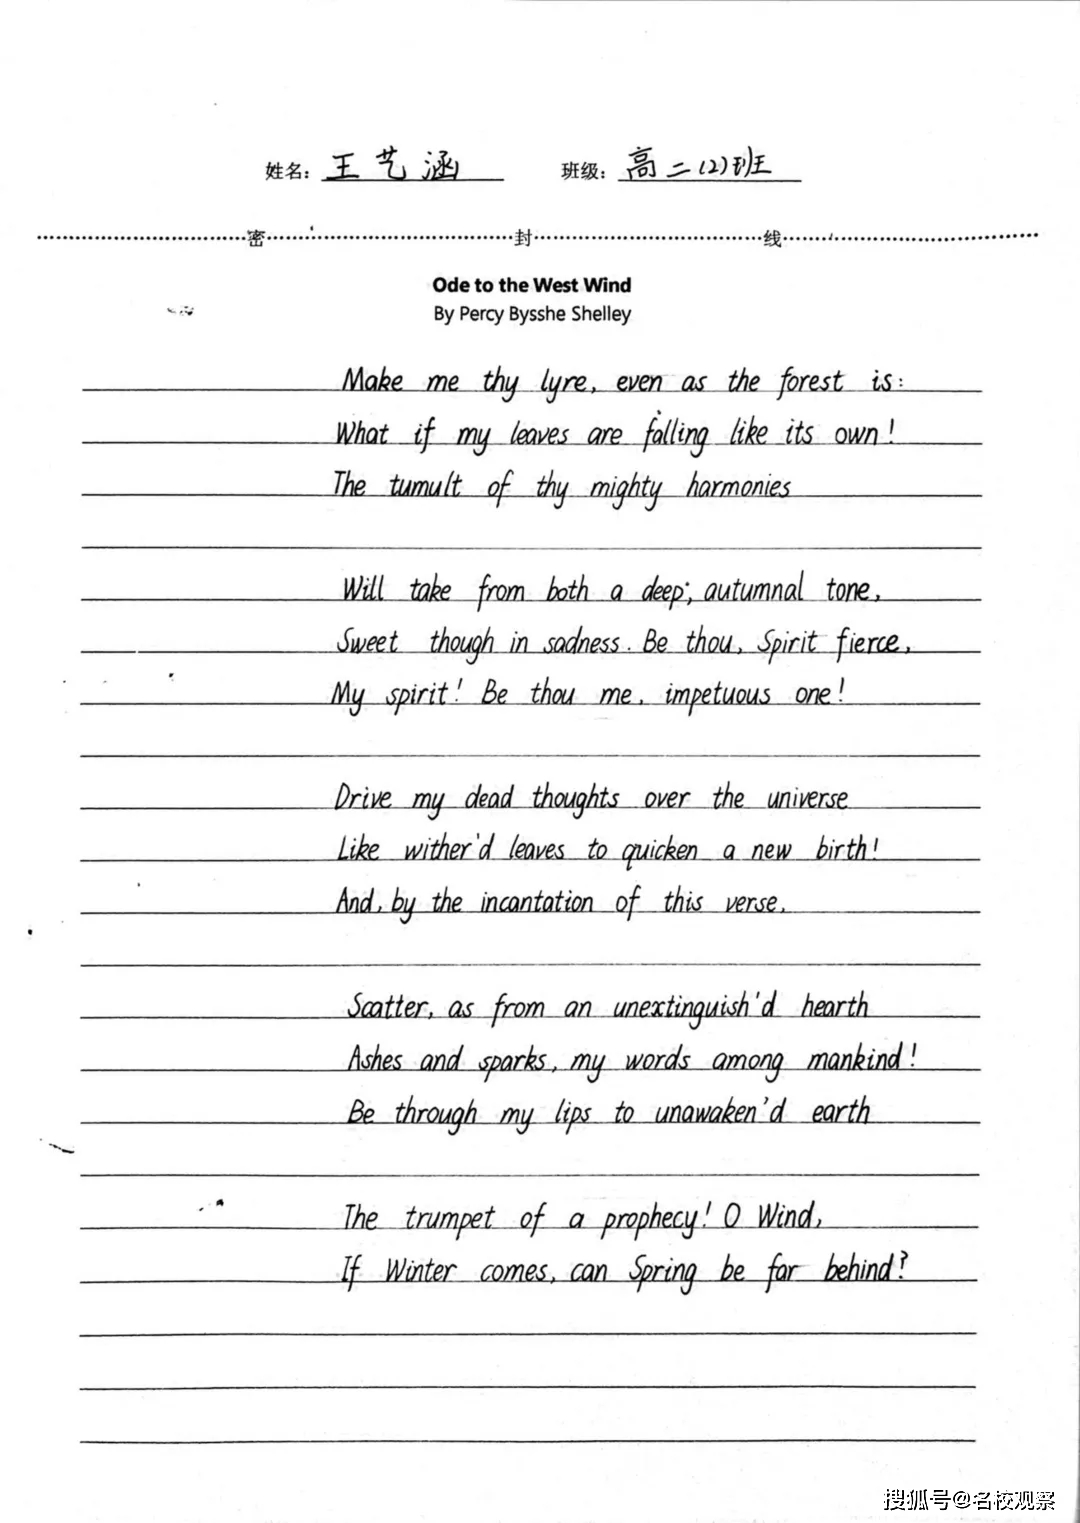 姓名：王艺涵 班级：高二(2)班
密 封 线
Ode to the West Wind
By Percy Bysshe Shelley
Make me thy lyre, even as the forest is:
What if my leaves are falling like its own!
The tumult of thy mighty harmonies
Will take from both a deep, autumnal tone,
Sweet though in sadness. Be thou, Spirit fierce,
My spirit! Be thou me, impetuous one!
Drive my dead thoughts over the universe
Like wither'd leaves to quicken a new birth!
And, by the incantation of this verse,
Scatter, as from an unextinguish'd hearth
Ashes and sparks, my words among mankind!
Be through my lips to unawaken'd earth
The trumpet of a prophecy! O Wind,
If Winter comes, can Spring be far behind?
搜狐号@名校观察